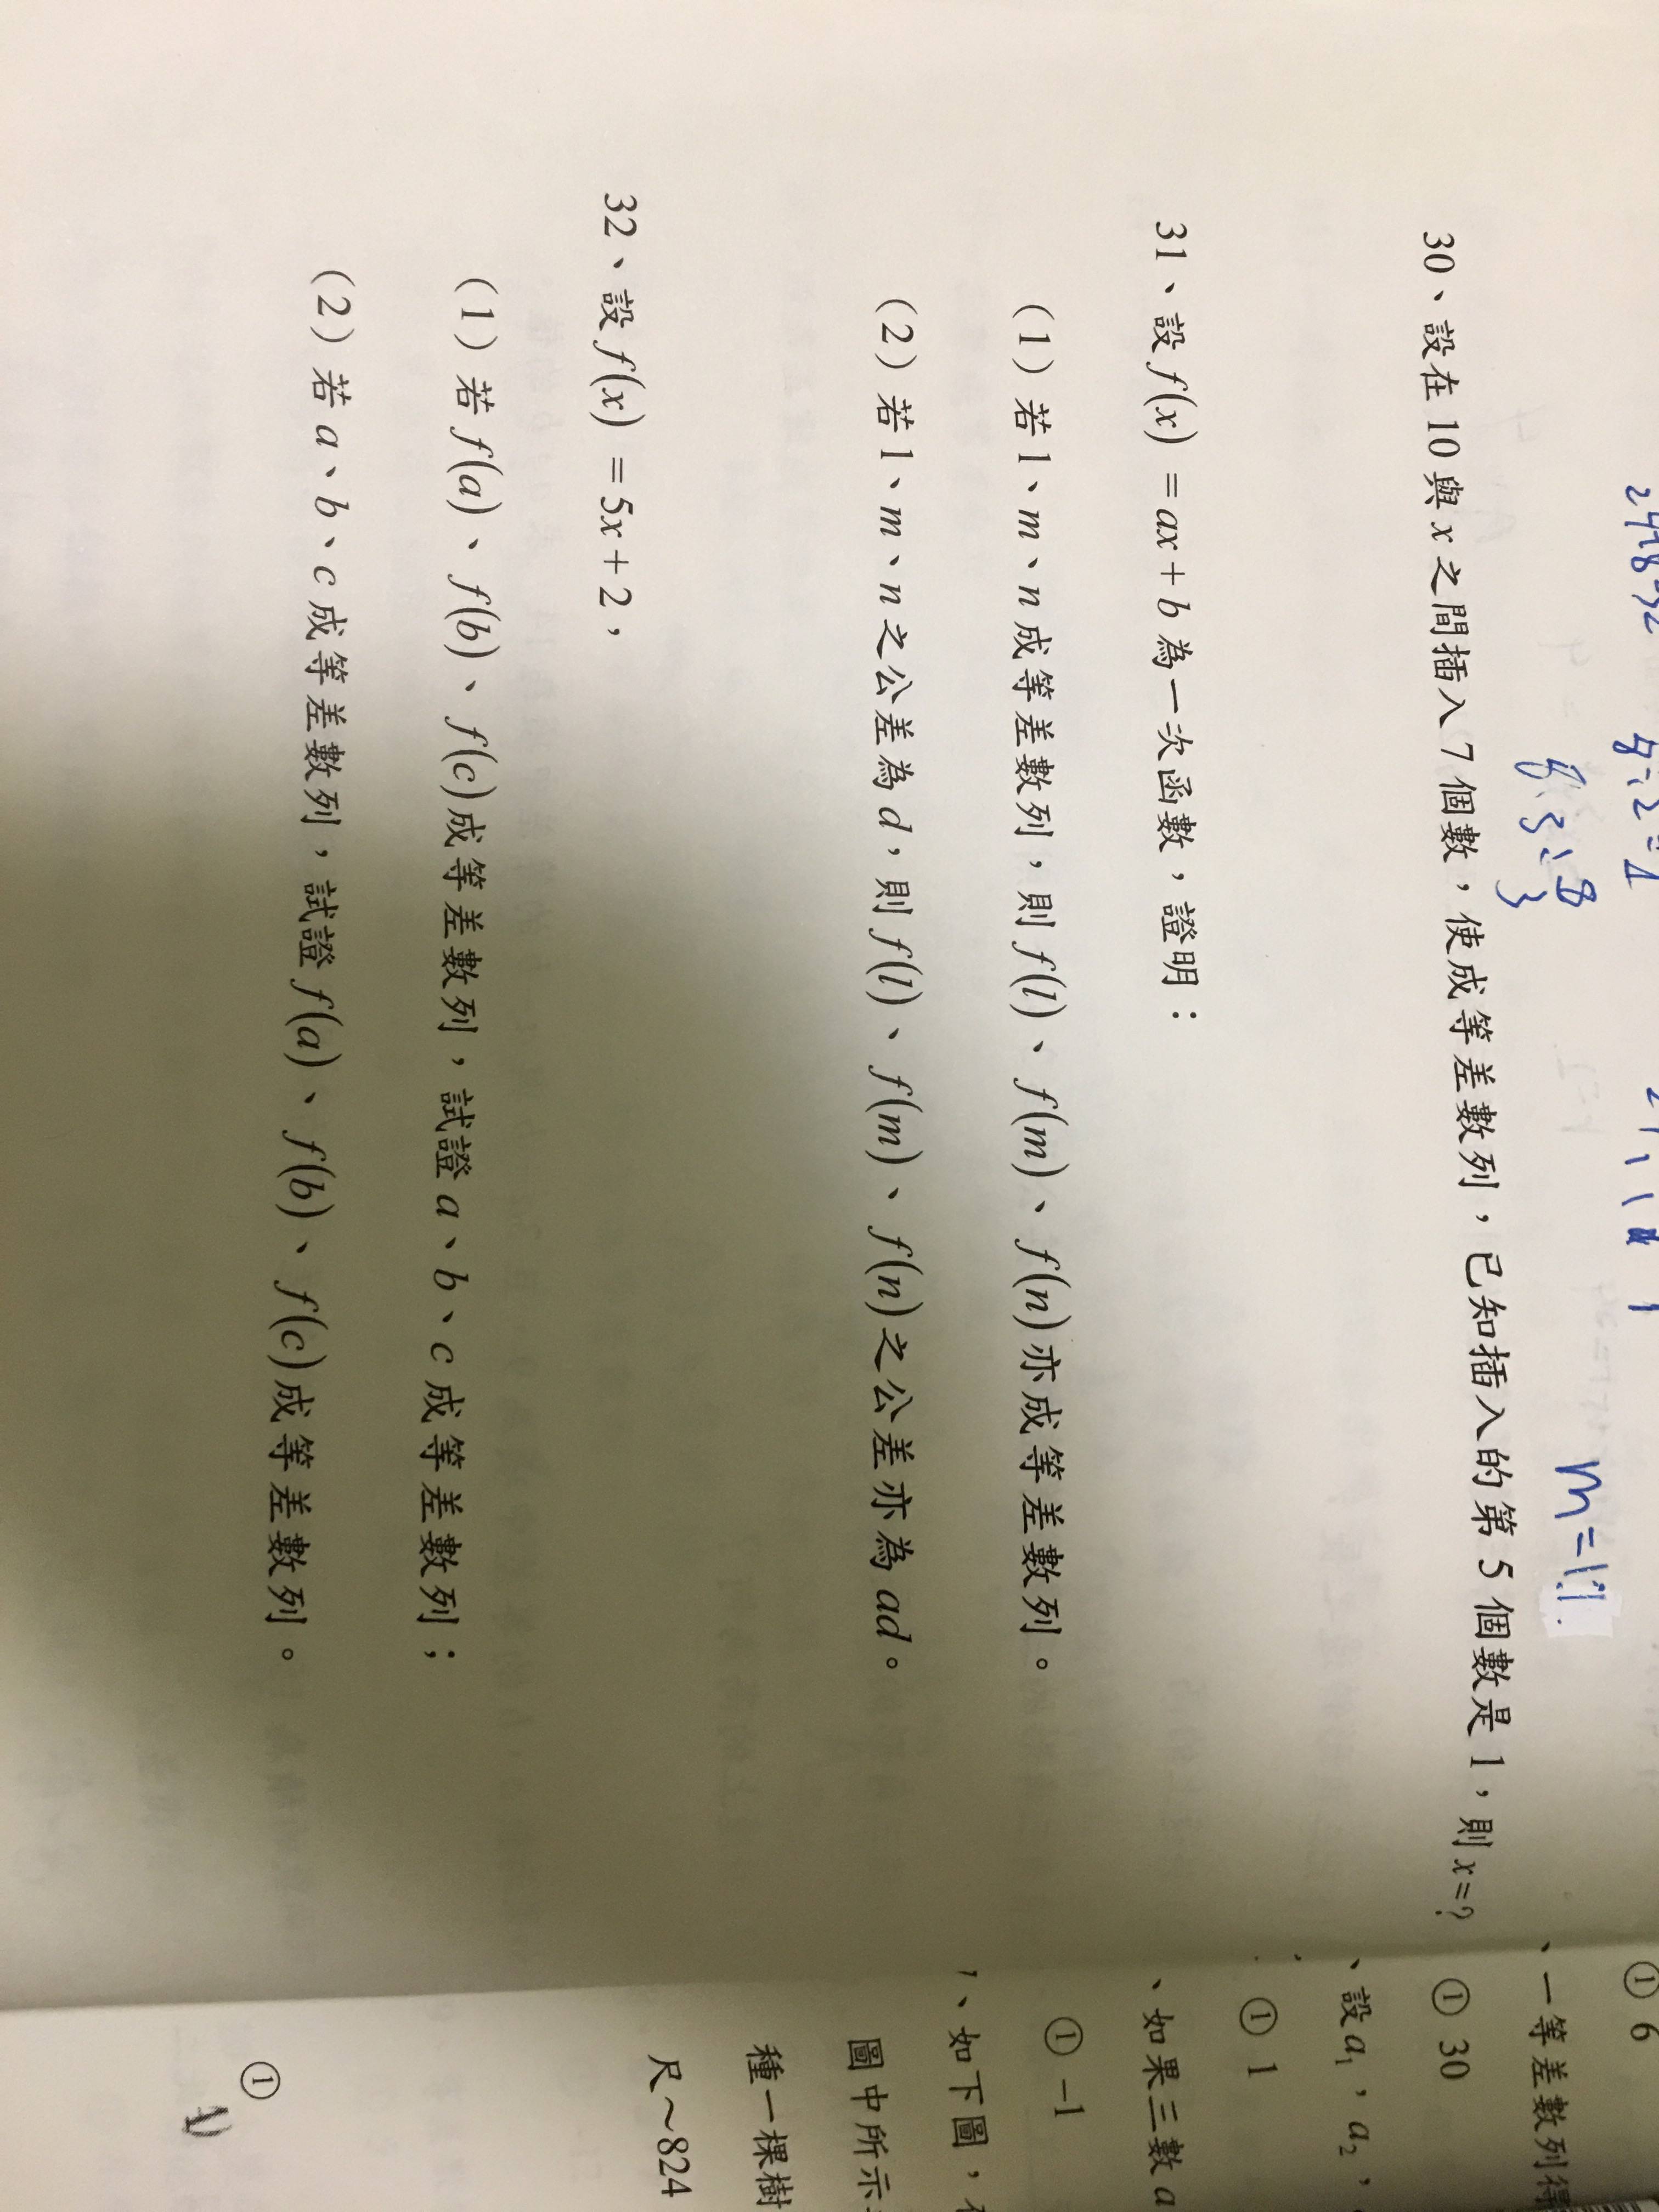 2448-32
8、2=4
8、3、8
3
m=11.
30、設在10與x之間插入7個數，使成等差數列，已知插入的第5個數是1，則x=?
31、設f(x)=ax+b為一次函數，證明：
（1）若1、m、n成等差數列，則f(l)、f(m)、f(n)亦成等差數列。
（2）若1、m、n之公差為d，則f(l)、f(m)、f(n)之公差亦為ad。
32、設f(x)=5x+2，
（1）若f(a)、f(b)、f(c)成等差數列，試證a、b、c成等差數列；
（2）若a、b、c成等差數列，試證f(a)、f(b)、f(c)成等差數列。
① 6
、一等差數列得
① 30
、設a₁，a₂，
① 1
、如果三數a
① -1
、如下圖，
圖中所示
種一棵樹
尺～824
①